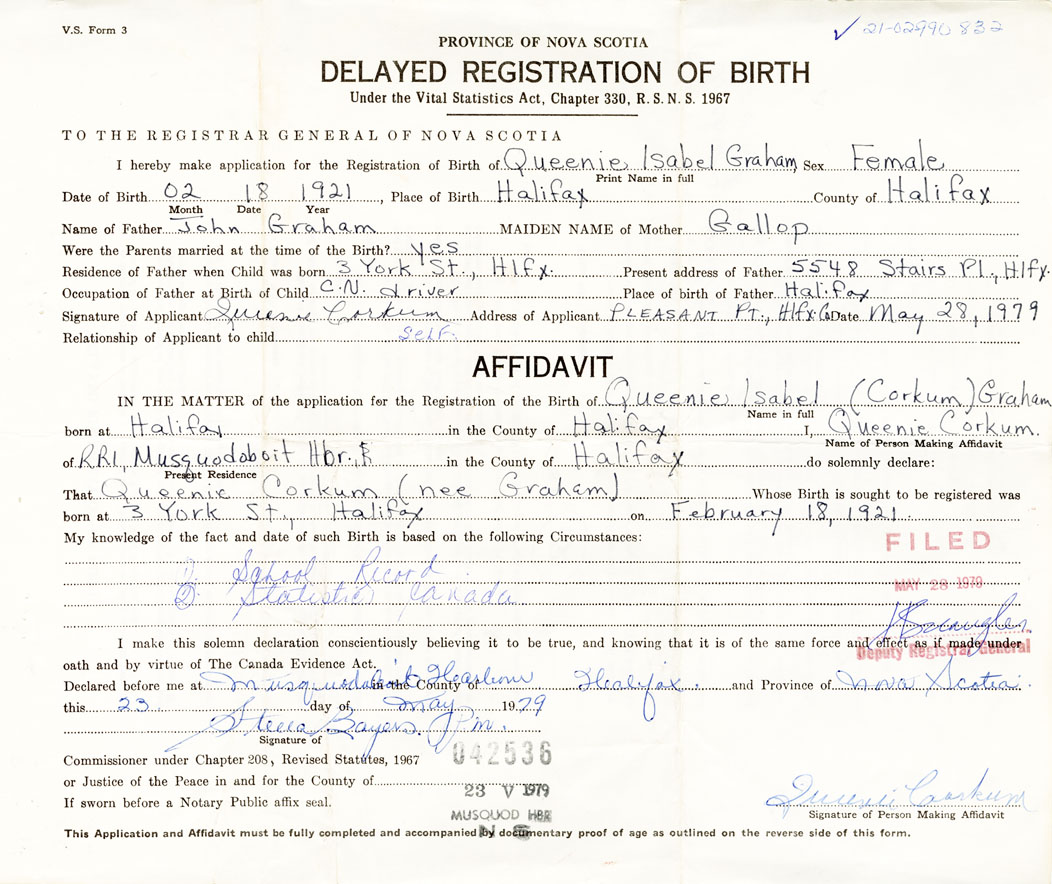 V.S. Form 3
✓ 21-02990832
PROVINCE OF NOVA SCOTIA
DELAYED REGISTRATION OF BIRTH
Under the Vital Statistics Act, Chapter 330, R. S. N. S. 1967
TO THE REGISTRAR GENERAL OF NOVA SCOTIA
I hereby make application for the Registration of Birth of Queenie Isabel Graham Sex Female
Print Name in full
Date of Birth 02 18 1921, Place of Birth Halifax County of Halifax
Month Date Year
Name of Father John Graham MAIDEN NAME of Mother Gallop
Were the Parents married at the time of the Birth? yes
Residence of Father when Child was born 3 York St., Hlfx. Present address of Father 5548 Stairs Pl., Hlfx.
Occupation of Father at Birth of Child C.N. driver Place of birth of Father Halifax
Signature of Applicant Queenie Corkum Address of Applicant PLEASANT PT., Hlfx Co Date May 28, 1979
Relationship of Applicant to child Self
AFFIDAVIT
IN THE MATTER of the application for the Registration of the Birth of Queenie Isabel (Corkum) Graham
Name in full
born at Halifax in the County of Halifax I, Queenie Corkum.
Name of Person Making Affidavit
of RR1, Musquodoboit Hbr., in the County of Halifax do solemnly declare:
Present Residence
That Queenie Corkum (nee Graham) Whose Birth is sought to be registered was
born at 3 York St., Halifax on February 18, 1921.
My knowledge of the fact and date of such Birth is based on the following Circumstances:
FILED
1) School Record
MAY 28 1979
2) Statistics Canada
I make this solemn declaration conscientiously believing it to be true, and knowing that it is of the same force and effect as if made under
Deputy Registrar General
oath and by virtue of The Canada Evidence Act.
Declared before me at Musquodoboit Harbour in the County of Halifax and Province of Nova Scotia
this 23 day of May 1979
Stella Bayers J Pm.
Signature of
042536
Commissioner under Chapter 208, Revised Statutes, 1967
or Justice of the Peace in and for the County of
23 V 1979
If sworn before a Notary Public affix seal.
Queenie Corkum
MUSQUOD HBR
Signature of Person Making Affidavit
N S
This Application and Affidavit must be fully completed and accompanied by documentary proof of age as outlined on the reverse side of this form.